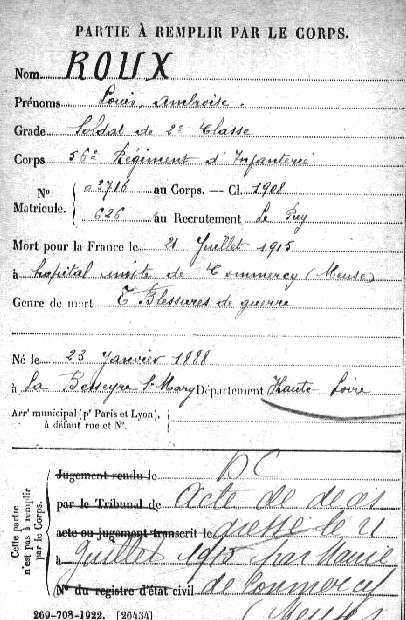 PARTIE À REMPLIR PAR LE CORPS.
Nom ROUX
Prénoms Louis Ambroise.
Grade Soldat de 2e Classe
Corps 56e Régiment d'Infanterie
No Matricule. { 02716 au Corps. — Cl. 1908
626 au Recrutement Le Puy
Mort pour la France le 21 Juillet 1915
à hôpital mixte de Commercy (Meuse)
Genre de mort Blessures de guerre
Né le 23 Janvier 1888
à La Besseyre St Mary Département Haute Loire
Arrt municipal (pr Paris et Lyon),
à défaut rue et No.
Cette partie n'est pas à remplir par le Corps.
Jugement rendu le DC
par le Tribunal de Acte de décès
acte ou jugement transcrit le dressé le 21
à Juillet 1915 par Mairie
No du registre d'état civil de Commercy
269-708-1922. [26434] (Meuse)